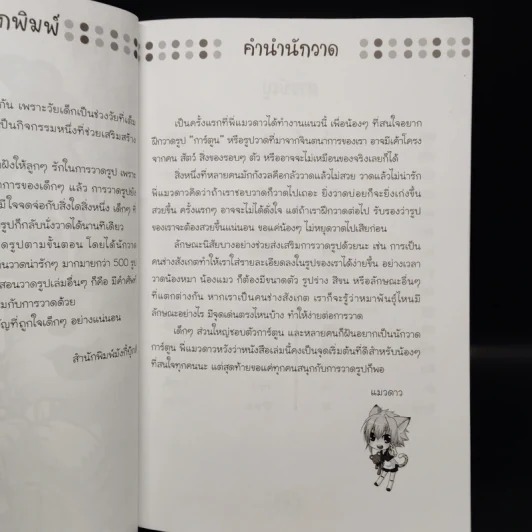 กพิมพ์
กัน เพราะวัยเด็กเป็นช่วงวัยที่เต็ม
เป็นกิจกรรมหนึ่งที่ช่วยเสริมสร้าง
ฝังให้ลูกๆ รักในการวาดรูป เพราะ
การของเด็กๆ แล้ว การวาดรูปยัง
มีใจจดจ่อกับสิ่งใดสิ่งหนึ่ง เด็กๆ
รูปก็กลับนั่งวาดได้นานทีเดียว
ดรูปตามขั้นตอน โดยได้นักวาด
านวาดน่ารักๆ มากมายกว่า 500 รูป
สอนวาดรูปเล่มอื่นๆ ก็คือ มีคำศัพ
มกับการวาดด้วย
ัญที่ถูกใจเด็กๆ อย่างแน่นอน
สำนักพิมพ์มังกี้บุ๊ก
คำนำนักวาด
เป็นครั้งแรกที่พี่แมวดาวได้ทำงานแนวนี้ เพื่อน้องๆ ที่สนใจอยาก
ฝึกวาดรูป "การ์ตูน" หรือรูปวาดที่มาจากจินตนาการของเรา อาจมีเค้าโครง
จากคน สัตว์ สิ่งของรอบๆ ตัว หรืออาจจะไม่เหมือนของจริงเลยก็ได้
สิ่งหนึ่งที่หลายคนมักกังวลคือกลัววาดแล้วไม่สวย วาดแล้วไม่น่ารัก
พี่แมวดาวคิดว่าถ้าเราชอบวาดก็วาดไปเถอะ ยิ่งวาดบ่อยก็จะยิ่งเก่งขึ้น
สวยขึ้น ครั้งแรกๆ อาจจะไม่ได้ดั่งใจ แต่ถ้าเราฝึกวาดต่อไป รับรองว่ารูป
ของเราจะต้องสวยขึ้นแน่นอน ขอแค่น้องๆ ไม่หยุดวาดไปเสียก่อน
ลักษณะนิสัยบางอย่างช่วยส่งเสริมการวาดรูปด้วยนะ เช่น การเป็น
คนช่างสังเกตทำให้เราใส่รายละเอียดลงในรูปของเราได้ง่ายขึ้น อย่างเวลา
วาดน้องหมา น้องแมว ก็ต้องมีขนาดตัว รูปร่าง สีขน หรือลักษณะอื่นๆ
ที่แตกต่างกัน หากเราเป็นคนช่างสังเกต เราก็จะรู้ว่าหมาพันธุ์ไหนมี
ลักษณะอย่างไร มีจุดเด่นตรงไหนบ้าง ทำให้ง่ายต่อการวาด
เด็กๆ ส่วนใหญ่ชอบตัวการ์ตูน และหลายคนก็ฝันอยากเป็นนักวาด
การ์ตูน พี่แมวดาวหวังว่าหนังสือเล่มนี้คงเป็นจุดเริ่มต้นที่ดีสำหรับน้องๆ
ที่สนใจทุกคนนะ แต่สุดท้ายขอแค่ทุกคนสนุกกับการวาดรูปก็พอ
แมวดาว